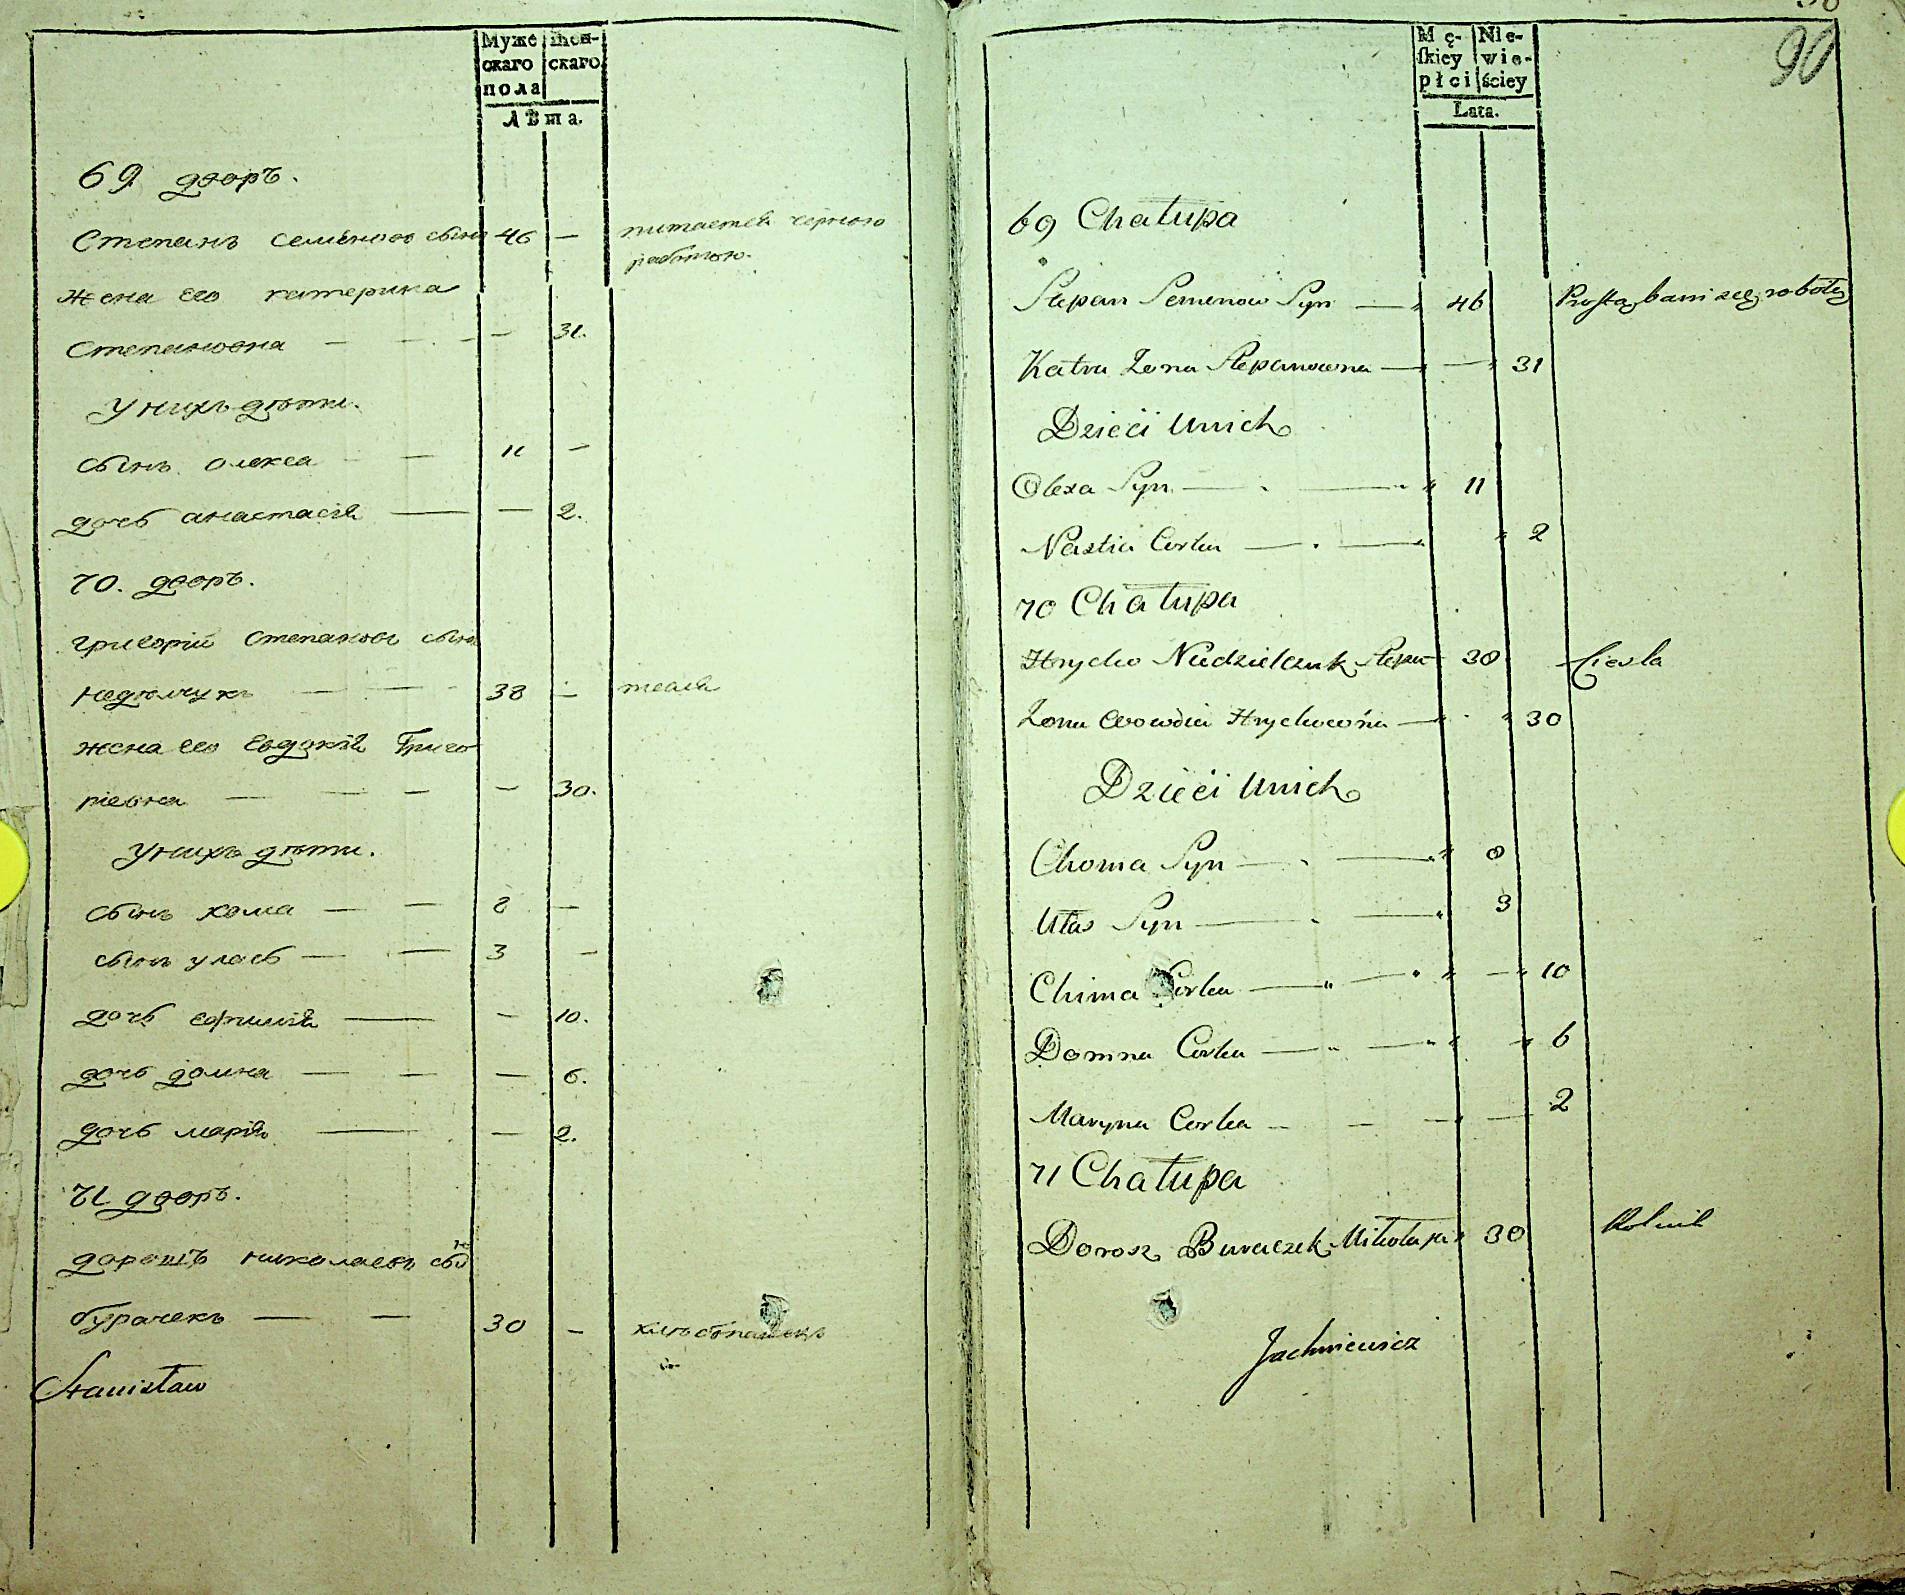 Муже
скаго
пола
Жен-
скаго
Лѣта.
69 дворъ.
Степанъ семёновъ сынъ 46 —
питается чорною
работою.
жена его катерина
Степановна — — — 31.
У нихъ дѣти.
сынъ олекса — — 11 —
дочь анастасія — — 2.
70. дворъ.
григорій степановъ сынъ
недѣлчукъ — — 38 — тесля
жена его Евдокія Григо
ріевна — — — — 30.
У нихъ дѣти.
сынъ хома — — 8 —
сынъ уласъ — — 3 —
дочь ефимія — — 10.
дочь домна — — — 6.
дочь марія — — 2.
71 дворъ.
дорошъ николаевъ сынъ
бурачекъ — — 30 — хлѣбопашецъ
Stanisław
90
Mę-
skiey
płci
Nie-
wie-
ściey
Lata.
69 Chałupa
Stepan Semenow Syn — 46 Prostą bawi się robotą
Katra Żona Stepanowna — — 31
Dzieci Unich
Olexa Syn — — 11
Nastia Corka — — 2
70 Chałupa
Hrycko Niedzielczuk Stepa 38 Ciesla
Żona Ewowdia Hrychowna — 30
Dzieci Unich
Choma Syn — — 8
Ułas Syn — — 3
Chima Corka — — — 10
Domna Corka — — 6
Maryna Corka — — — — 2
71 Chałupa
Dorosz Buraczek Mikołaja 30 Rolnik
Jachniewicz